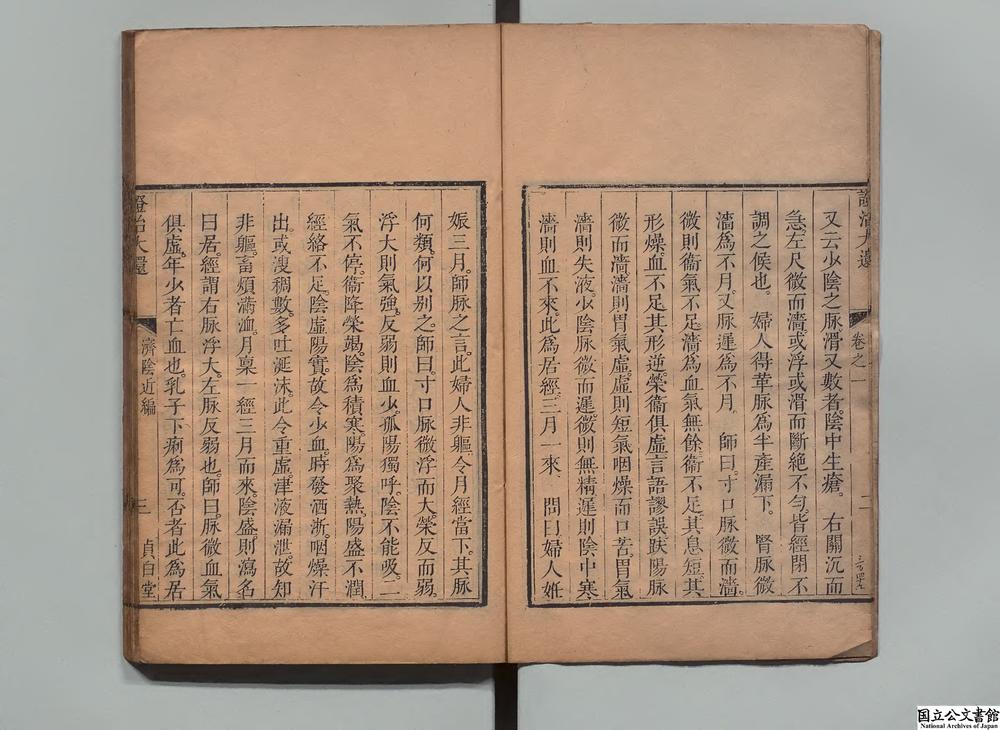 證治大還
卷之一
二
又云少陰之脉滑又數者陰中生瘡。右關沉而
急。左尺微而濇或浮或滑而斷絶不勻。皆經閉不
調之候也。婦人得革脉為半產漏下。腎脉微
濇為不月。又脉遲為不月。師曰。寸口脉微而濇。
微則衞氣不足。濇為血氣無餘。衞不足。其息短。其
形燥。血不足。其形逆。榮衞俱虛。言語謬誤。趺陽脉
微而濇。濇則胃氣虛。虛則短氣咽燥而口苦。胃氣
濇則失液。少陰脉微而遲。微則無精。遲則陰中寒。
濇則血不來。此為居經。三月一來。問曰。婦人姙
娠三月。師脉之。言此婦人非軀。今月經當下。其脉
何類。何以别之。師曰。寸口脉微浮而大。榮反而弱。
浮大則氣強。反弱則血少。孤陽獨呼。陰不能吸。二
氣不停。衞降榮竭。陰為積寒。陽為聚熱。陽盛不潤。
經絡不足。陰虛陽實。故令少血。時發洒淅。咽燥汗
出。或溲稠數。多吐涎沫。此令重虛。津液漏泄。故知
非軀。畜煩滿洫。月禀一經。三月而來。陰盛則瀉。名
曰居經。謂右脉浮大。左脉反弱也。師曰。脉微血氣
俱虛。年少者亡血也。乳子下痢為可。否者此為居
證治大還
濟陰近編
三
貞白堂
国立公文書館
National Archives of Japan